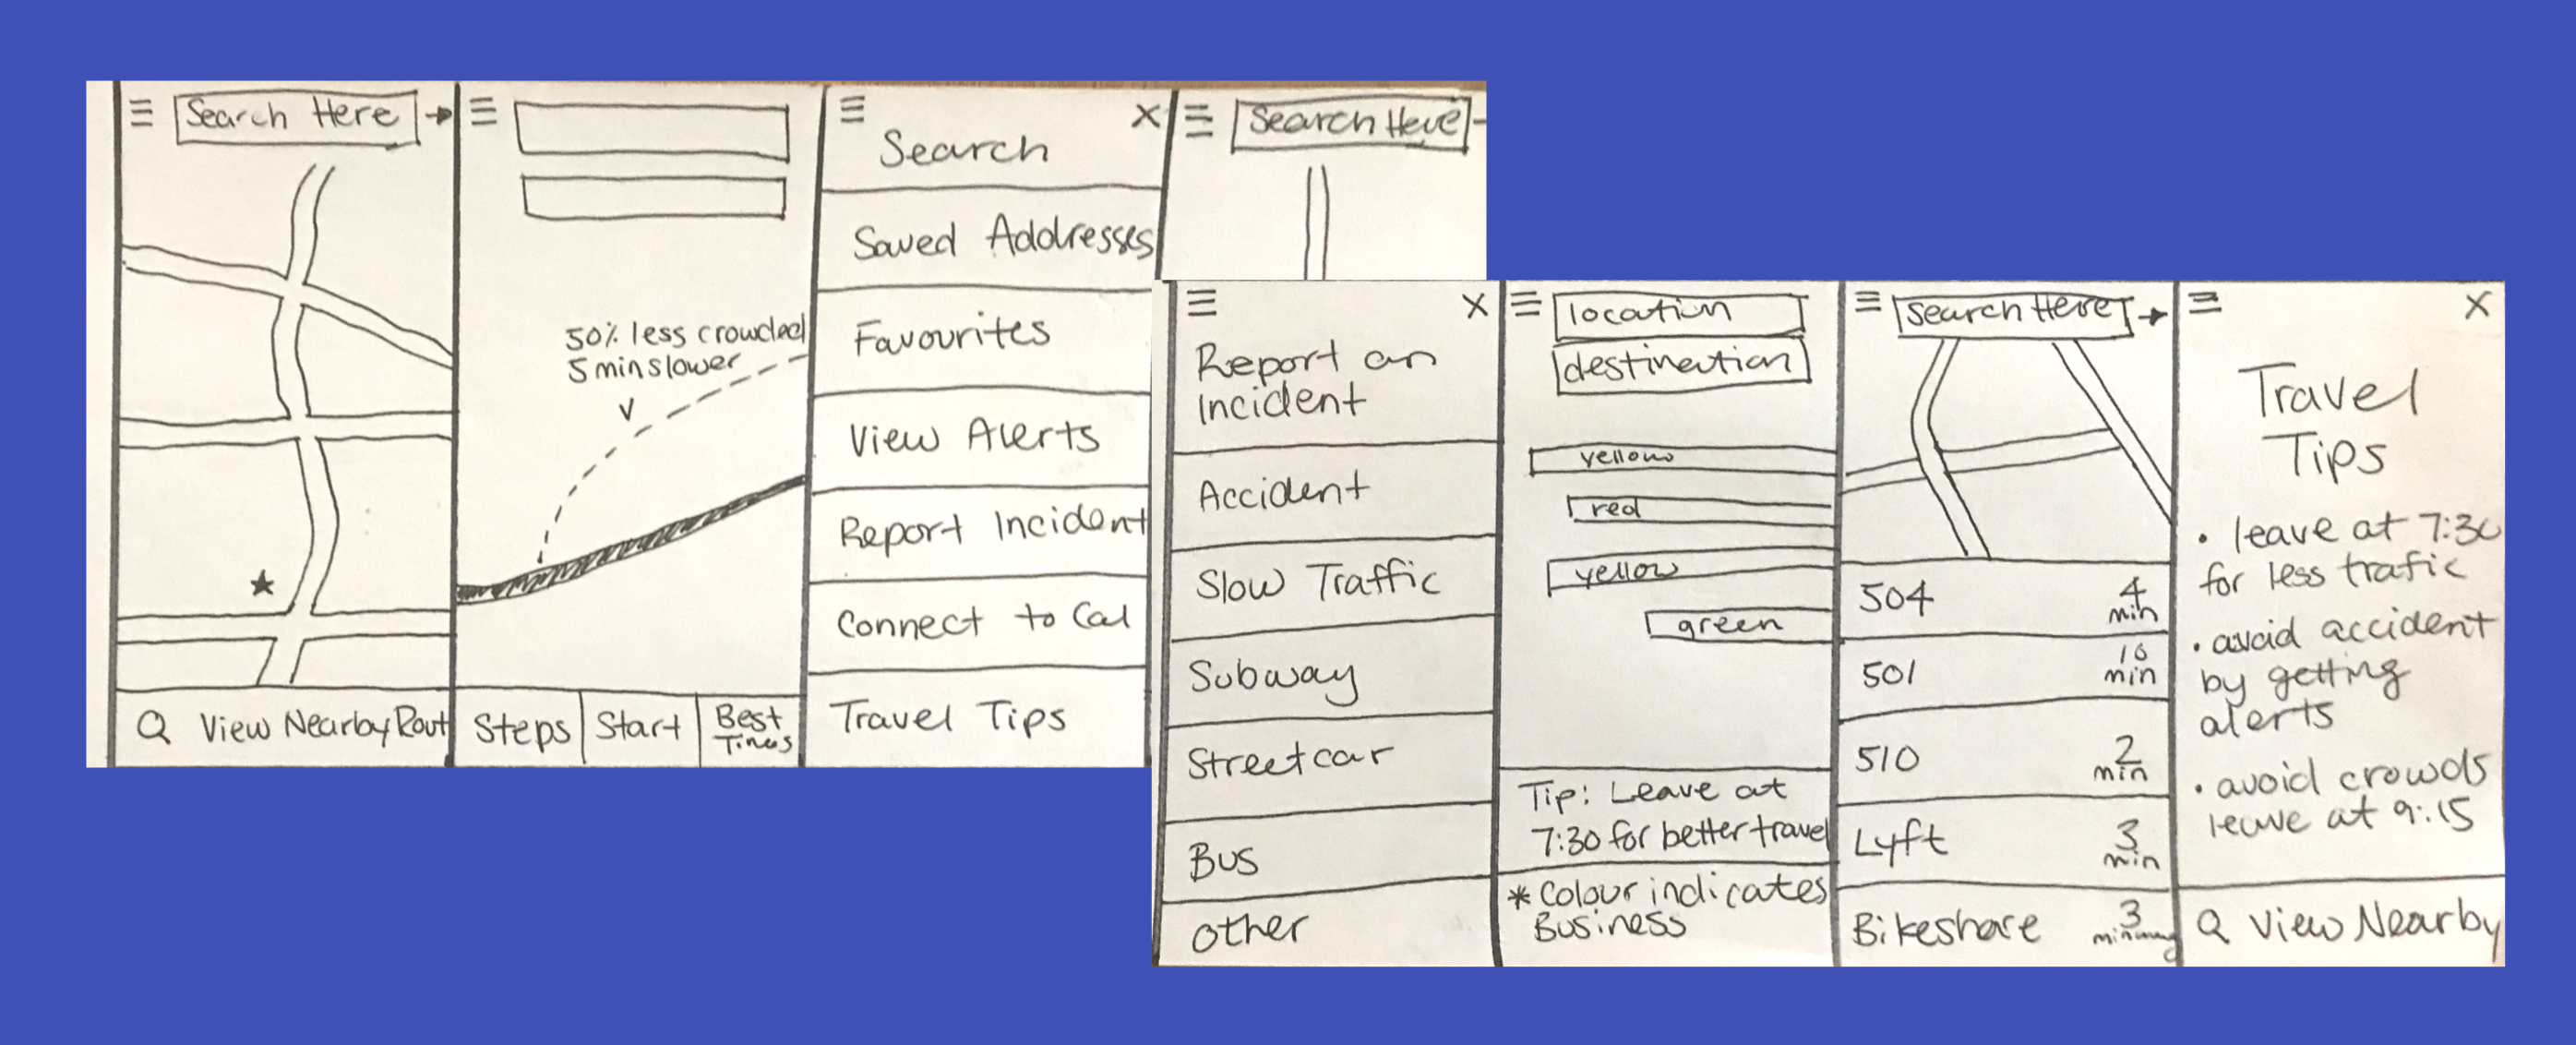 Search Here
View Nearby Rout
50% less crowded
5 min slower
Steps
Start
Best
Times
X
Search
Saved Addresses
Favourites
View Alerts
Report Incident
Connect to Cal
Travel Tips
Search Here
X
Report an
Incident
Accident
Slow Traffic
Subway
Streetcar
Bus
other
location
destination
yellow
red
yellow
green
Tip: Leave at
7:30 for better travel
* Colour indicates
Business
Search Here
504 4 min
501 10 min
510 2 min
Lyft 3 min
Bikeshare 3 min
X
Travel
Tips
• leave at 7:30
for less trafic
• avoid accident
by getting
alerts
• avoid crowds
leave at 9:15
View Nearby